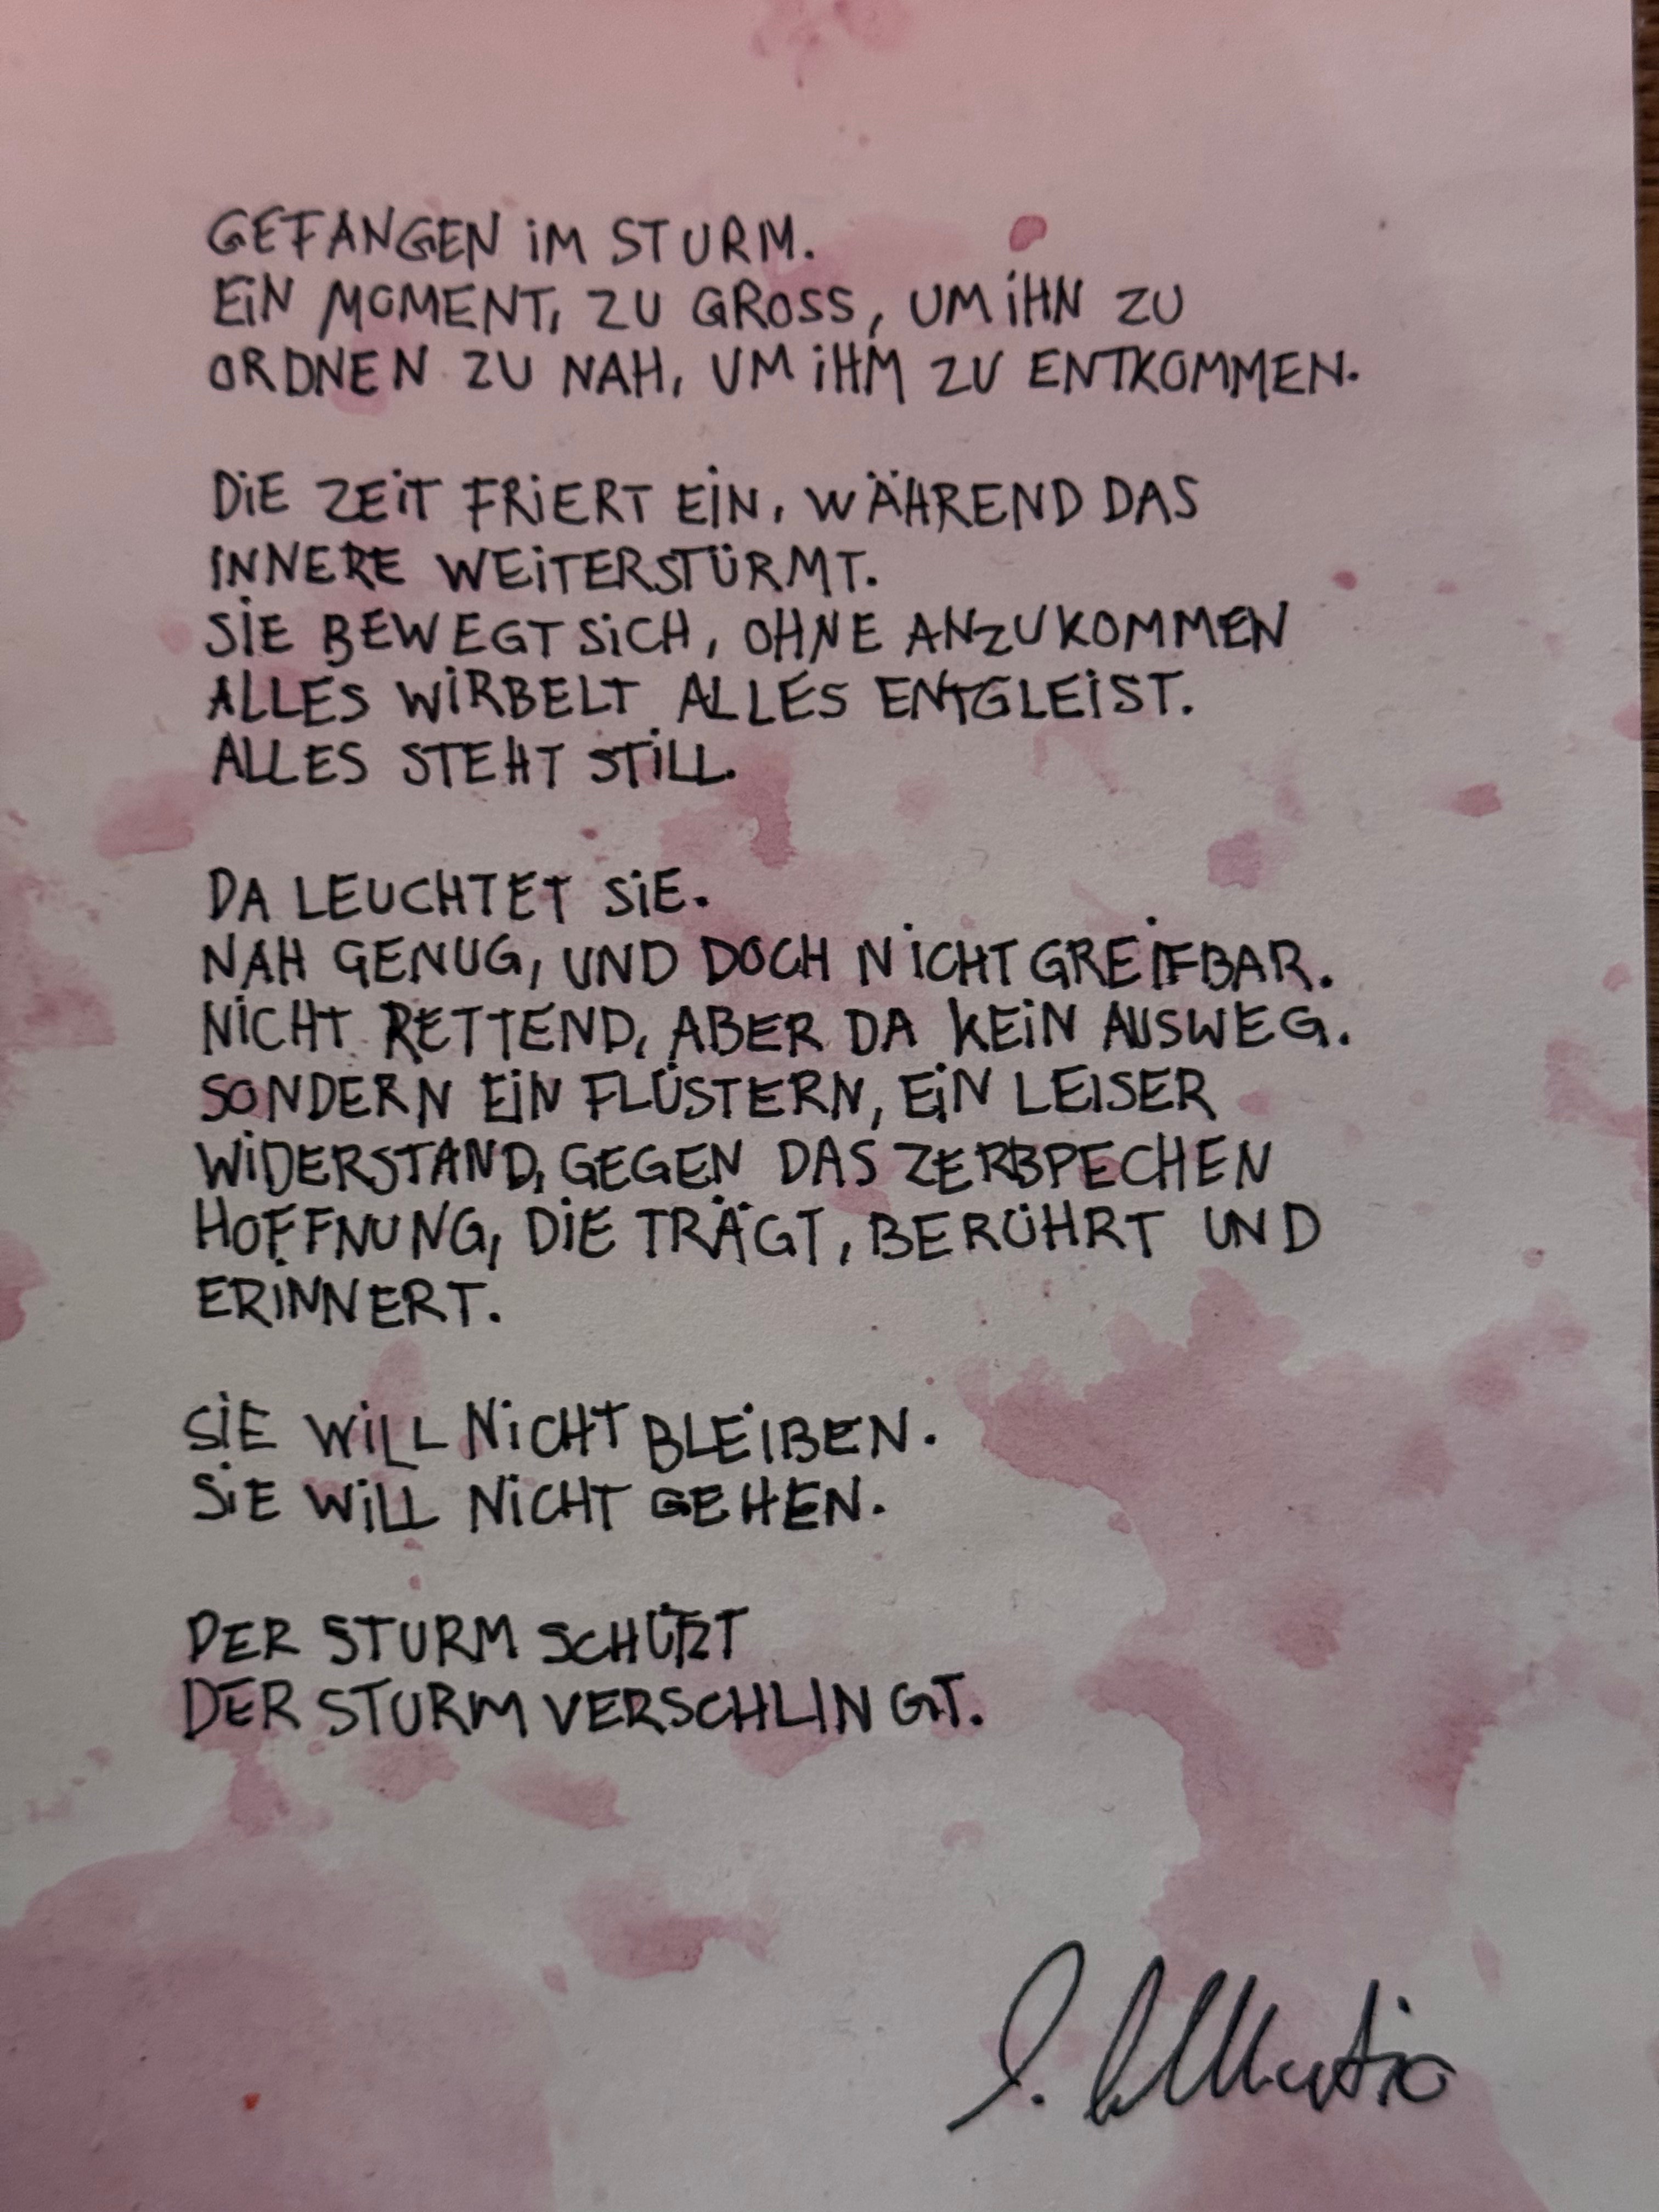 GEFANGEN IM STURM.
EIN MOMENT, ZU GROSS, UM IHN ZU
ORDNEN ZU NAH, UM IHM ZU ENTKOMMEN.
DIE ZEIT FRIERT EIN, WÄHREND DAS
INNERE WEITERSTÜRMT.
SIE BEWEGT SICH, OHNE ANZUKOMMEN
ALLES WIRBELT ALLES ENTGLEIST.
ALLES STEHT STILL.
DA LEUCHTET SIE.
NAH GENUG, UND DOCH NICHT GREIFBAR.
NICHT RETTEND, ABER DA KEIN AUSWEG.
SONDERN EIN FLÜSTERN, EIN LEISER
WIDERSTAND, GEGEN DAS ZERBPECHEN
HOFFNUNG, DIE TRÄGT, BERÜHRT UND
ERINNERT.
SIE WILL NICHT BLEIBEN.
SIE WILL NICHT GEHEN.
DER STURM SCHÜTZT
DER STURM VERSCHLINGT.